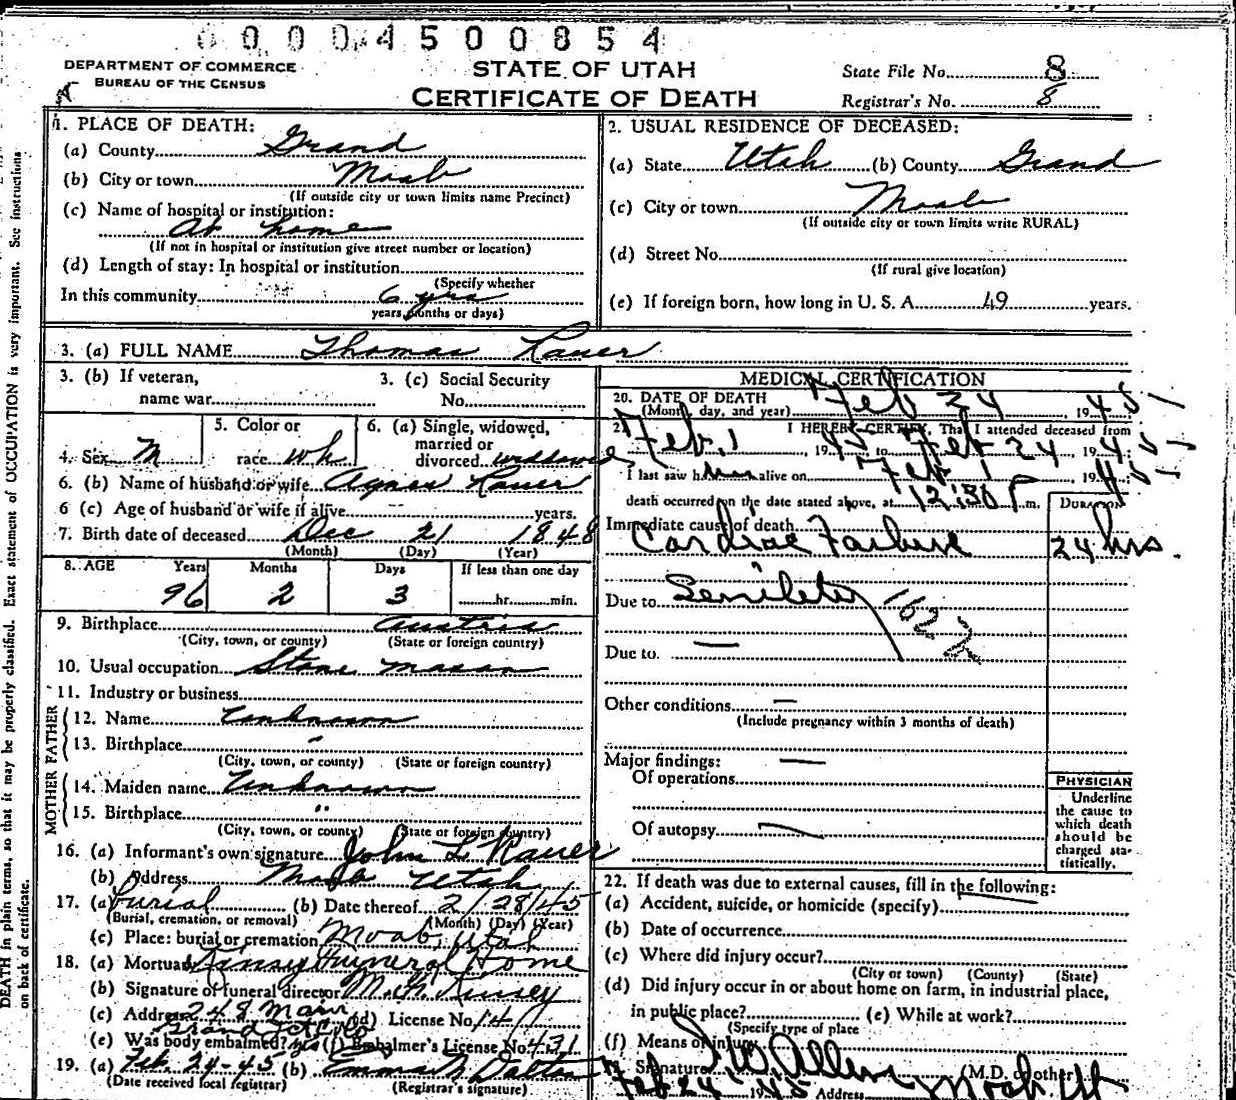 0000 4500854
DEPARTMENT OF COMMERCE
BUREAU OF THE CENSUS
STATE OF UTAH
CERTIFICATE OF DEATH
State File No. 8
Registrar's No. 8
1. PLACE OF DEATH:
(a) County Grand
(b) City or town Moab
(If outside city or town limits name Precinct)
(c) Name of hospital or institution:
At home
(If not in hospital or institution give street number or location)
(d) Length of stay: In hospital or institution
(Specify whether
In this community 6 yrs
years, months or days)
2. USUAL RESIDENCE OF DECEASED:
(a) State Utah (b) County Grand
(c) City or town Moab
(If outside city or town limits write RURAL)
(d) Street No.
(If rural give location)
(e) If foreign born, how long in U. S. A. 49 years.
3. (a) FULL NAME Thomas Rauer
3. (b) If veteran,
name war
3. (c) Social Security
No.
4. Sex M
5. Color or
race Wh
6. (a) Single, widowed,
married or
divorced widdowed
6. (b) Name of husband or wife Agnes Rauer
6 (c) Age of husband or wife if alive years.
7. Birth date of deceased Dec 21 1848
(Month) (Day) (Year)
8. AGE Years Months Days If less than one day
96 2 3 hr. min.
9. Birthplace Austria
(City, town, or county) (State or foreign country)
10. Usual occupation Stone mason
11. Industry or business
FATHER
12. Name Unknown
13. Birthplace "
(City, town, or county) (State or foreign country)
MOTHER
14. Maiden name Unknown
15. Birthplace "
(City, town, or county) (State or foreign country)
16. (a) Informant's own signature John L Rauer
(b) Address Moab Utah
17. (a) burial (b) Date thereof 2/28/45
(Burial, cremation, or removal) (Month) (Day) (Year)
(c) Place: burial or cremation Moab, Utah
18. (a) Mortuary Kinsey Funeral Home
(b) Signature of funeral director M. Kinsey
(c) Address 248 Main (d) License No. 14
Grand Jct Colo
(e) Was body embalmed? yes (f) Embalmer's License No. 431
19. (a) Feb. 24-45 (b) Emma N Dalton
(Date received local registrar) (Registrar's signature)
MEDICAL CERTIFICATION
20. DATE OF DEATH
(Month, day, and year) Feb 24, 1945
21. I HEREBY CERTIFY, That I attended deceased from
Feb. 1, 1945, to Feb 24, 1945
I last saw him alive on Feb 1, 1945
death occurred on the date stated above, at 12:30 P m.
DURATION
Immediate cause of death
Cardiac Failure 24 hrs.
Due to Senility 1622
Due to —
Other conditions —
(Include pregnancy within 3 months of death)
Major findings: —
Of operations
Of autopsy —
PHYSICIAN
Underline
the cause to
which death
should be
charged sta-
tistically.
22. If death was due to external causes, fill in the following:
(a) Accident, suicide, or homicide (specify)
(b) Date of occurrence
(c) Where did injury occur?
(City or town) (County) (State)
(d) Did injury occur in or about home on farm, in industrial place,
in public place? (e) While at work?
(Specify type of place
(f) Means of injury
Signature Allen (M.D. or other)
Feb 24 1945 Address Moab Ut
DEATH in plain terms, so that it may be properly classified. Exact statement of OCCUPATION is very important. See instructions
on back of certificate.